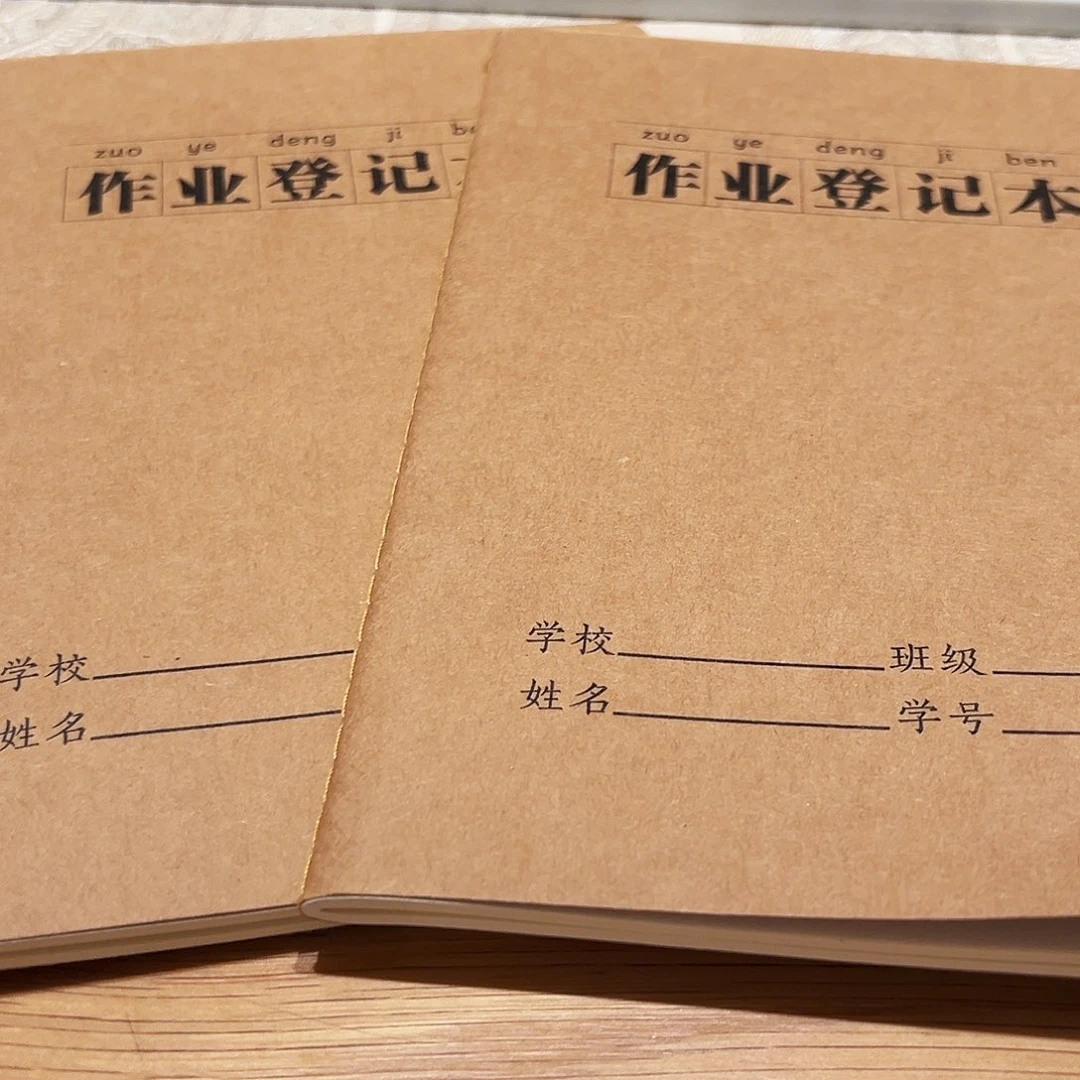 zuo ye deng ji
作业登记
学校
姓名
zuo ye deng ji ben
作业登记本
学校 班级
姓名 学号